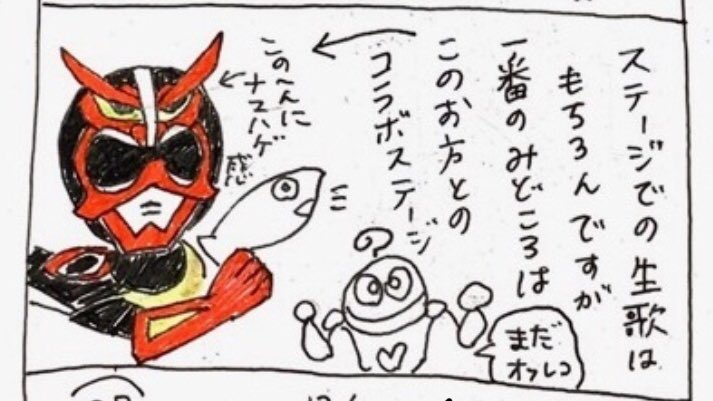 ステージでの生歌は
もちろんですが
一番のみどころは
このお方との
コラボステージ
このへんに
ナマハゲ
感
まだ
オフレコ